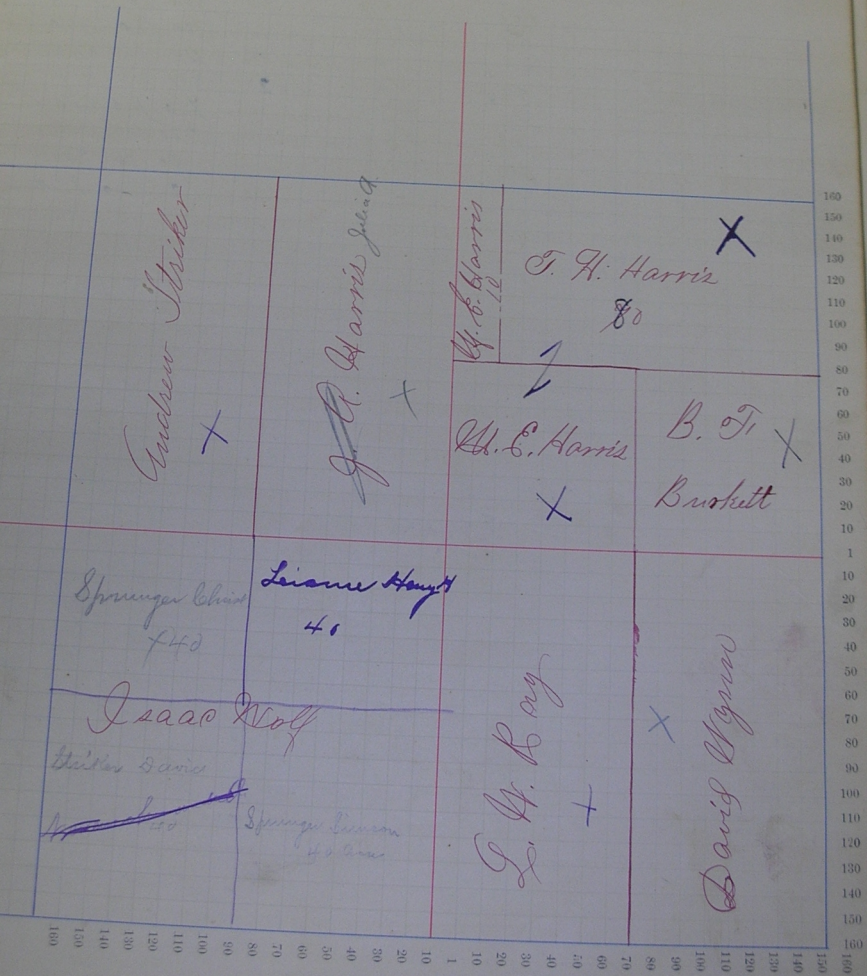 Andrew Striker
J. A. Harris Julia A.
W. E. Harris
10
T. H. Harris
80
W. E. Harris
B. F.
Burkett
Sprunger Christ
40
40
Isaac Wolf
Striker David
Sprunger
40 acres
L. W. Ray
David Wynn
160
150
140
130
120
110
100
90
80
70
60
50
40
30
20
10
1
10
20
30
40
50
60
70
80
90
100
110
120
130
140
150
160
160 150 140 130 120 110 100 90 80 70 60 50 40 30 20 10 1 10 20 30 40 50 60 70 80 90 100 110 120 130 140 150 160